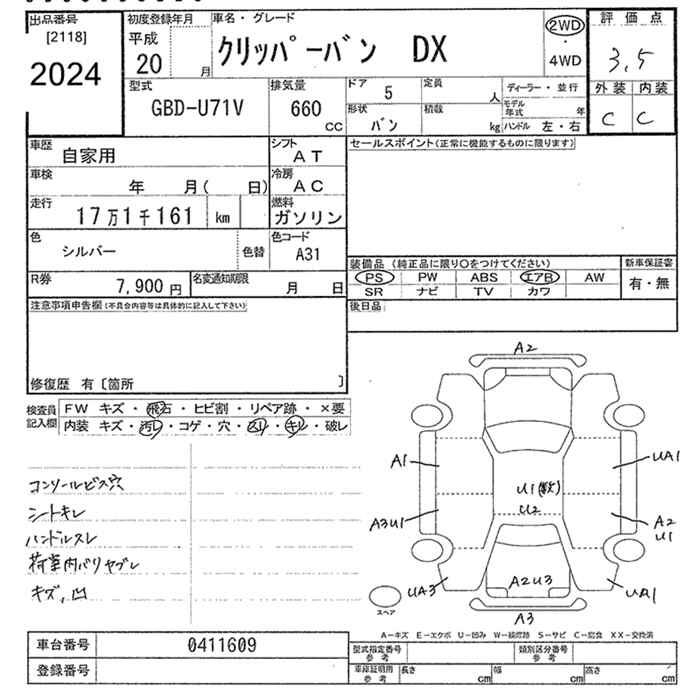 出品番号
[2118]
2024
初度登録年月
平成
20 月
車名・グレード
クリッパーバン DX
2WD
・
4WD
評価点
3,5
外装 内装
C C
型式
GBD-U71V
排気量
660
CC
ドア 5
定員 人
形状 バン
積載 kg
ディーラー・並行
モデル年式 年
ハンドル 左・右
車歴 自家用
シフト AT
車検 年 月( 日)
冷房 AC
走行 17万1千161 km
燃料 ガソリン
色 シルバー 色替
色コード A31
R券 7,900円
名変通知期限 月 日
セールスポイント(正常に機能するものに限ります)
装備品(純正品に限り○をつけてください)
PS PW ABS エアB AW
SR ナビ TV カワ
新車保証書
有・無
後日品
注意事項申告欄(不具合内容等は具体的に記入して下さい)
修復歴 有〔箇所 〕
検査員記入欄
FW キズ・飛石・ヒビ割・リペア跡・×要
内装 キズ・汚レ・コゲ・穴・スレ・キレ・破レ
コンソールビス穴
シートキレ
ハンドルスレ
荷室内バリヤブレ
キズ,凹
A2
A1
UA1
U1(数)
U2
A3U1
A2
U1
UA3
A2U3
UA1
A3
スペア
A-キズ E-エクボ U-凹み W-線修跡 S-サビ C-腐食 XX-交換済
車台番号 0411609
登録番号
型式指定番号
参考
類別区分番号
参考
車庫証明用
参考
長さ cm
幅 cm
高さ cm